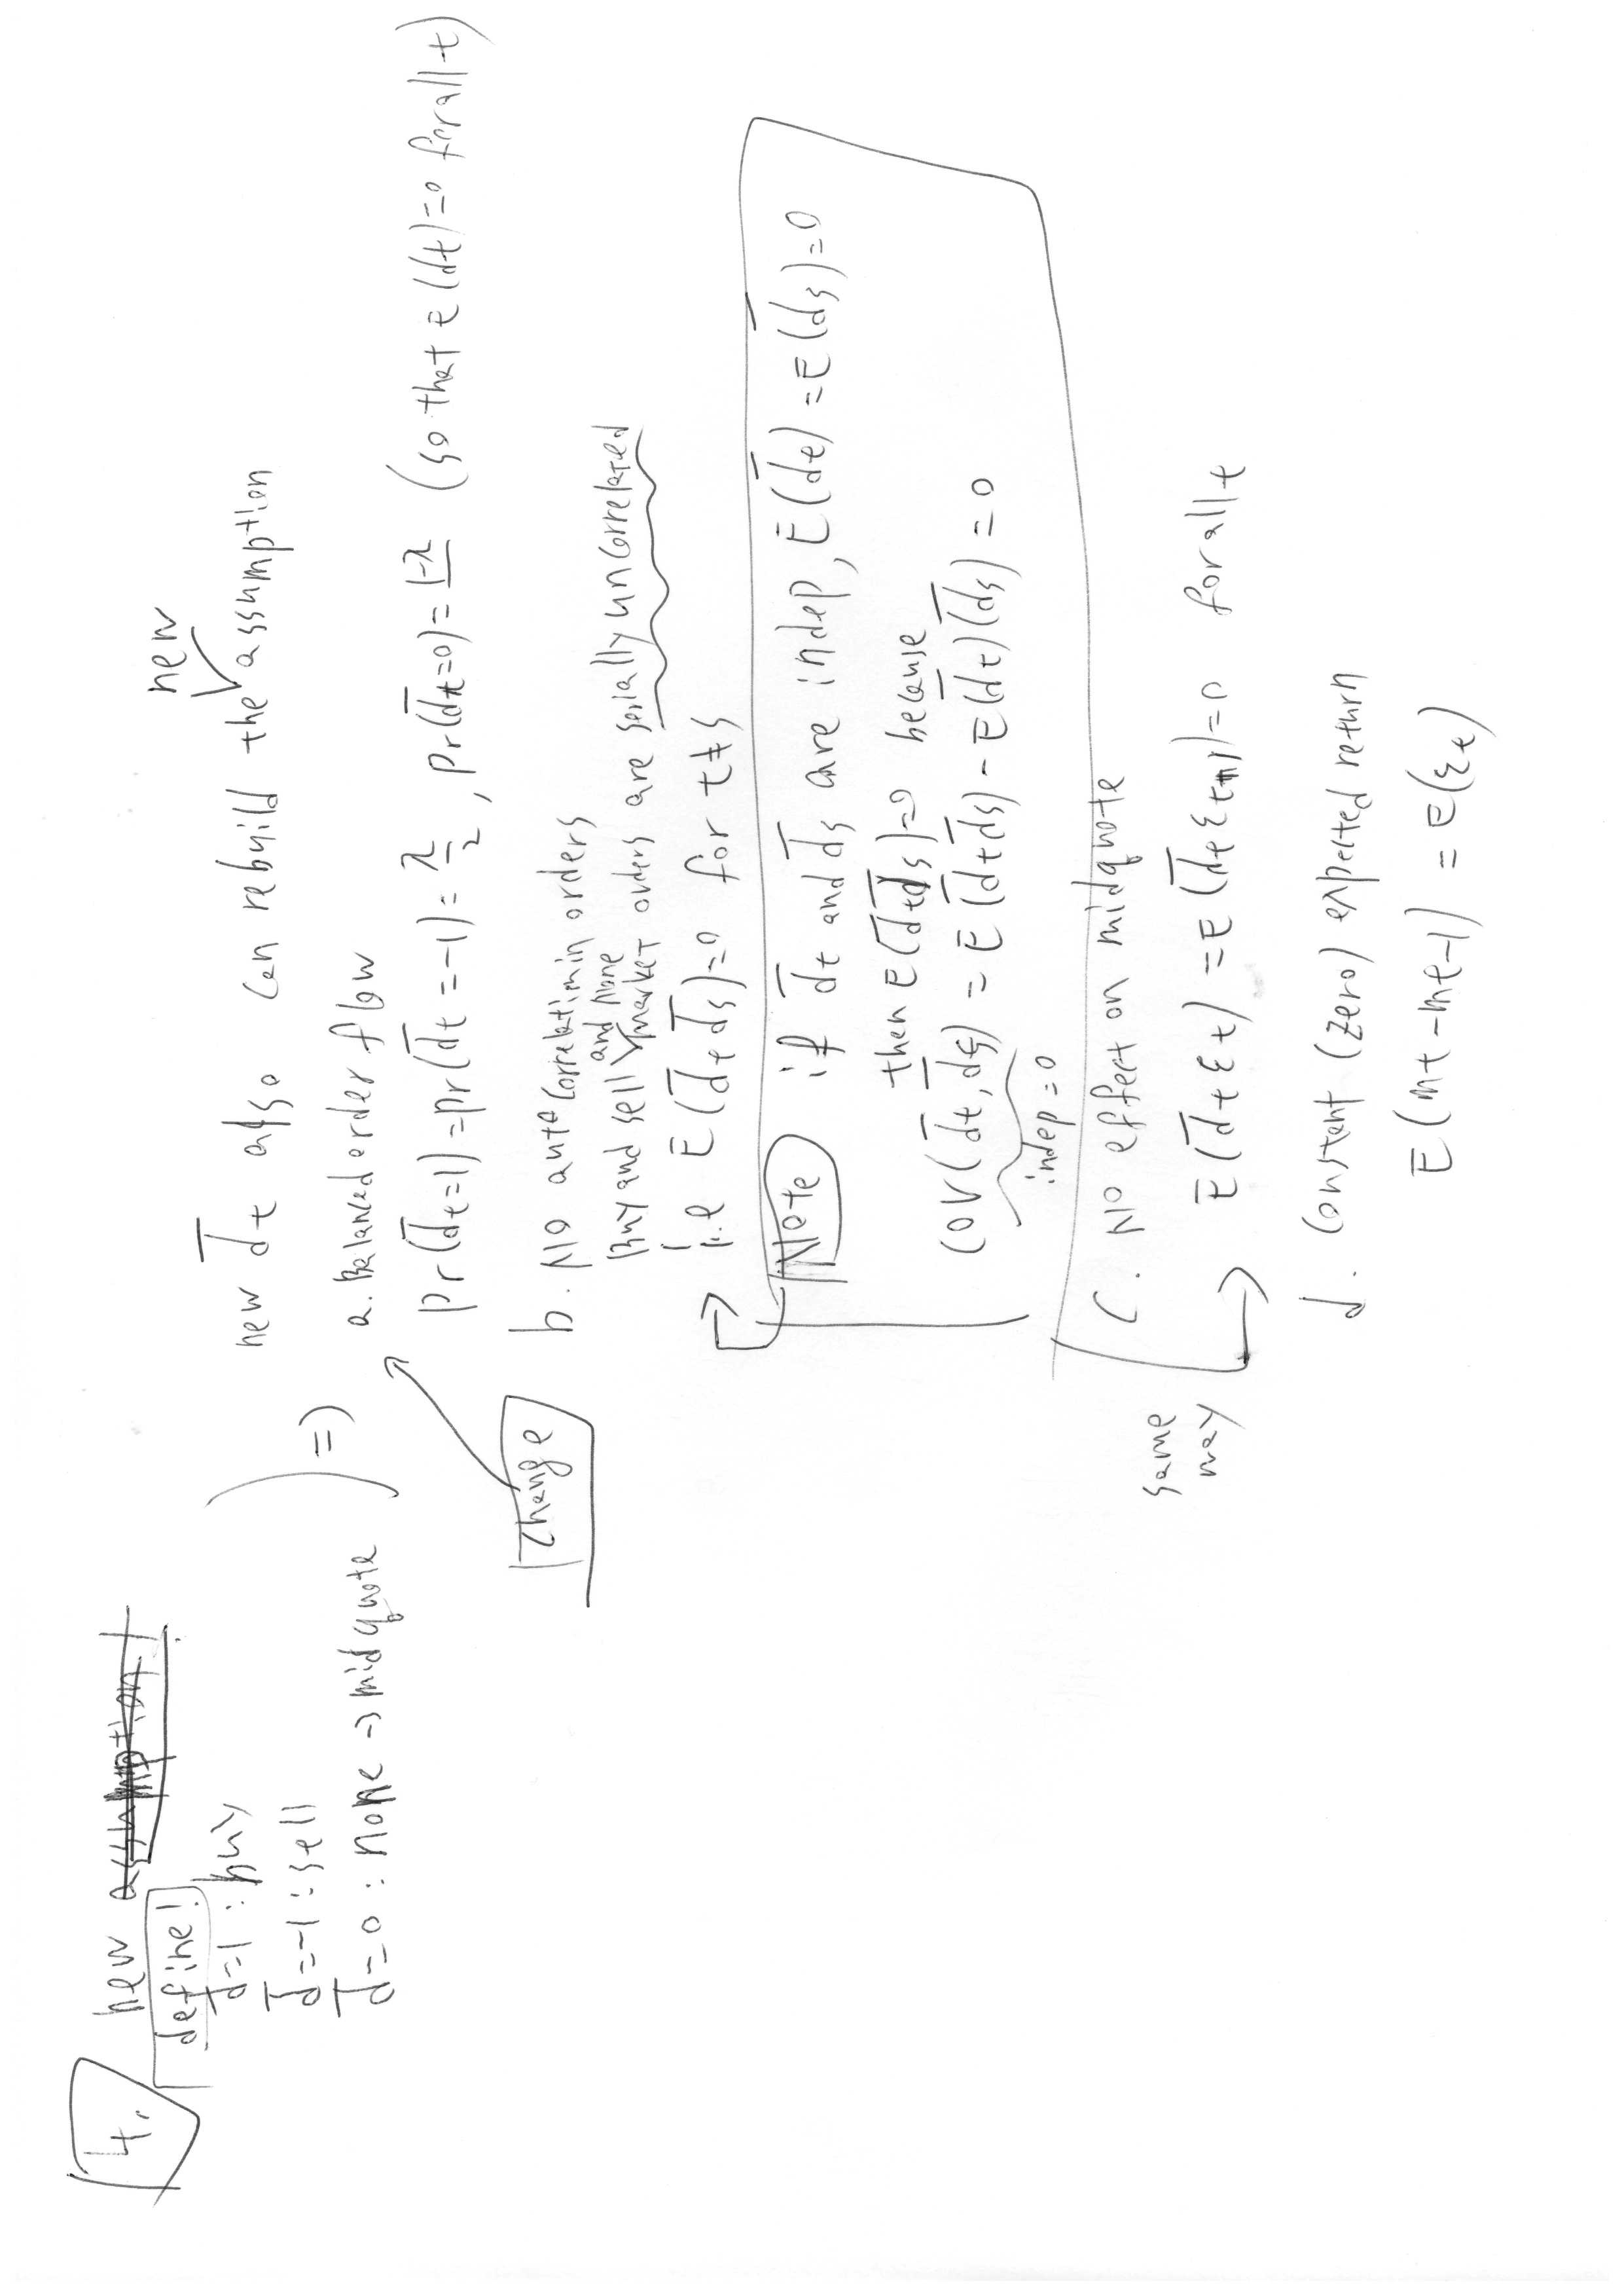 4. new assumption!
define!
d̄=1 : buy
d̄=-1 : sell
d̄=0 : none → midquote
=>
new
new d̄t also can rebuild the assumption
a. Balanced order flow
Pr(d̄t=1)=pr(d̄t=-1)=λ/2, pr(d̄t=0)=1-λ (so that E(dt)=0 for all t)
change
b. No autocorrelation in orders
and none
Buy and sell market orders are serially uncorrelated
i.e E(d̄t d̄s)=0 for t≠s
Note if d̄t and d̄s are indep, E(d̄t)=E(d̄s)=0
then E(d̄t d̄s)=0 because
cov(d̄t, d̄s) = E(d̄t d̄s) - E(d̄t)(d̄s) = 0
indep = 0
c. No effect on midquote
same
way
E(d̄t εt) = E(d̄t εt+1)=0 for all t
d. Constant (zero) expected return
E(mt-mt-1) = E(εt)